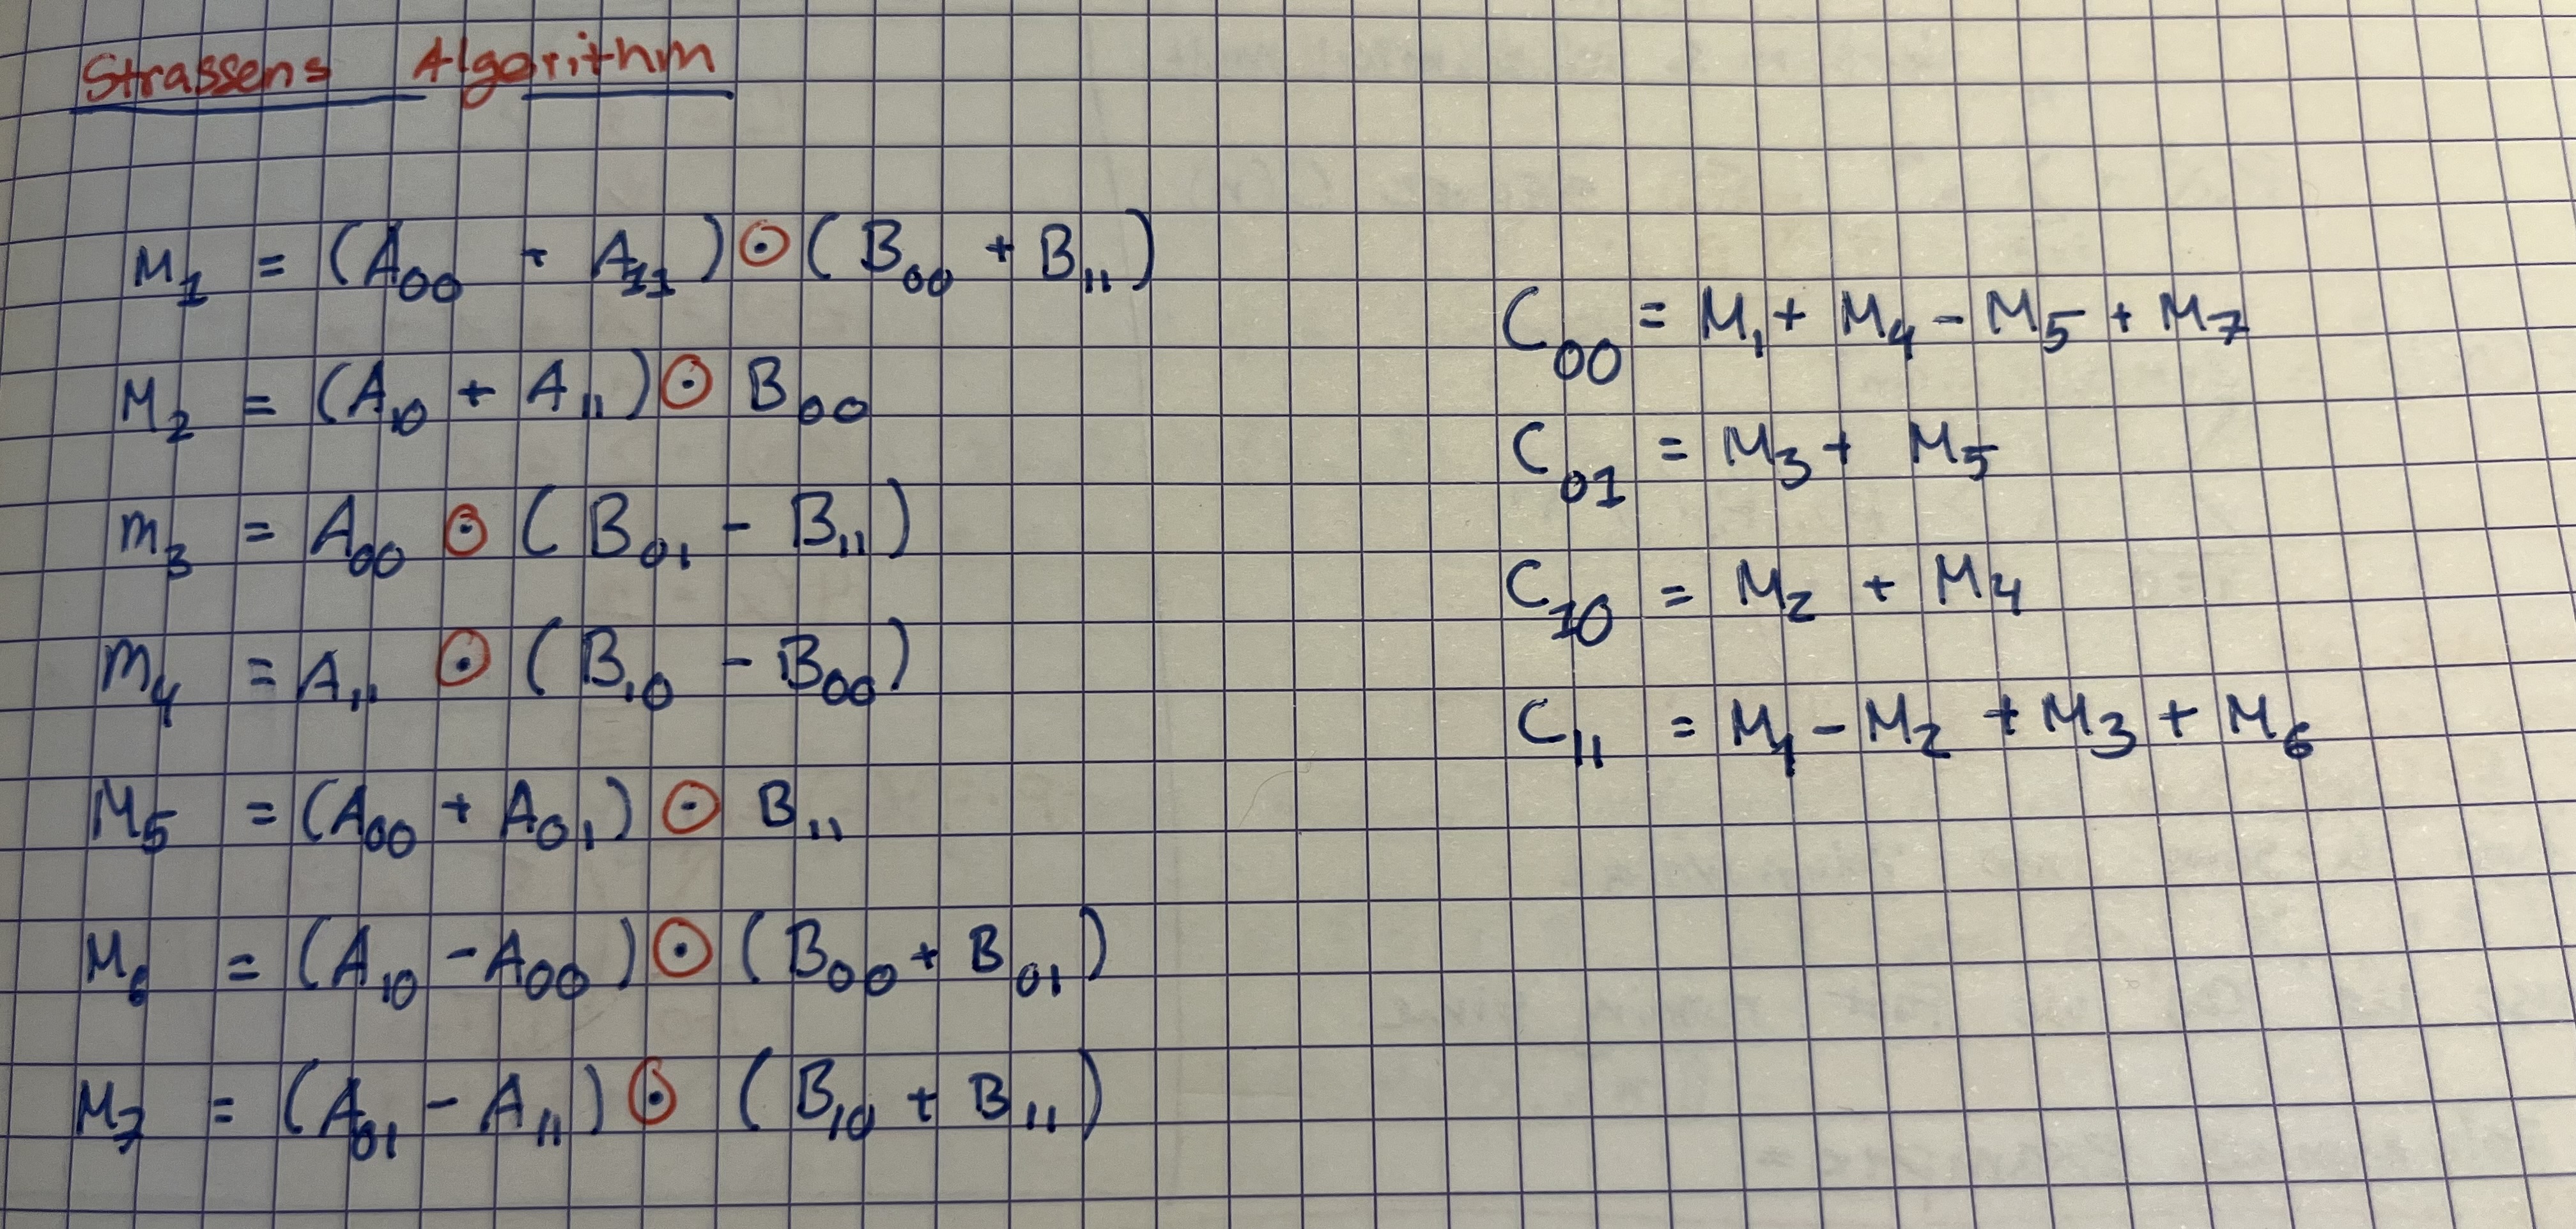 Strassens Algorithm
M₁ = (A₀₀ + A₁₁) ⊙ (B₀₀ + B₁₁)
M₂ = (A₁₀ + A₁₁) ⊙ B₀₀
m₃ = A₀₀ ⊙ (B₀₁ - B₁₁)
m₄ = A₁₁ ⊙ (B₁₀ - B₀₀)
M₅ = (A₀₀ + A₀₁) ⊙ B₁₁
M₆ = (A₁₀ - A₀₀) ⊙ (B₀₀ + B₀₁)
M₇ = (A₀₁ - A₁₁) ⊙ (B₁₀ + B₁₁)
C₀₀ = M₁ + M₄ - M₅ + M₇
C₀₁ = M₃ + M₅
C₁₀ = M₂ + M₄
C₁₁ = M₁ - M₂ + M₃ + M₆